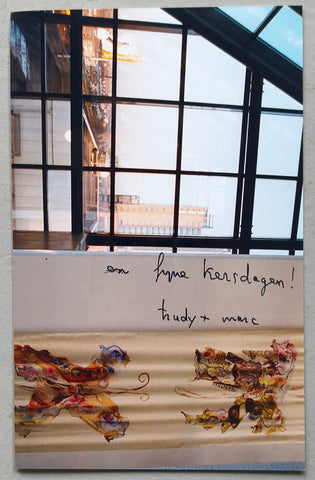 en fijne kersdagen!
trudy + marc